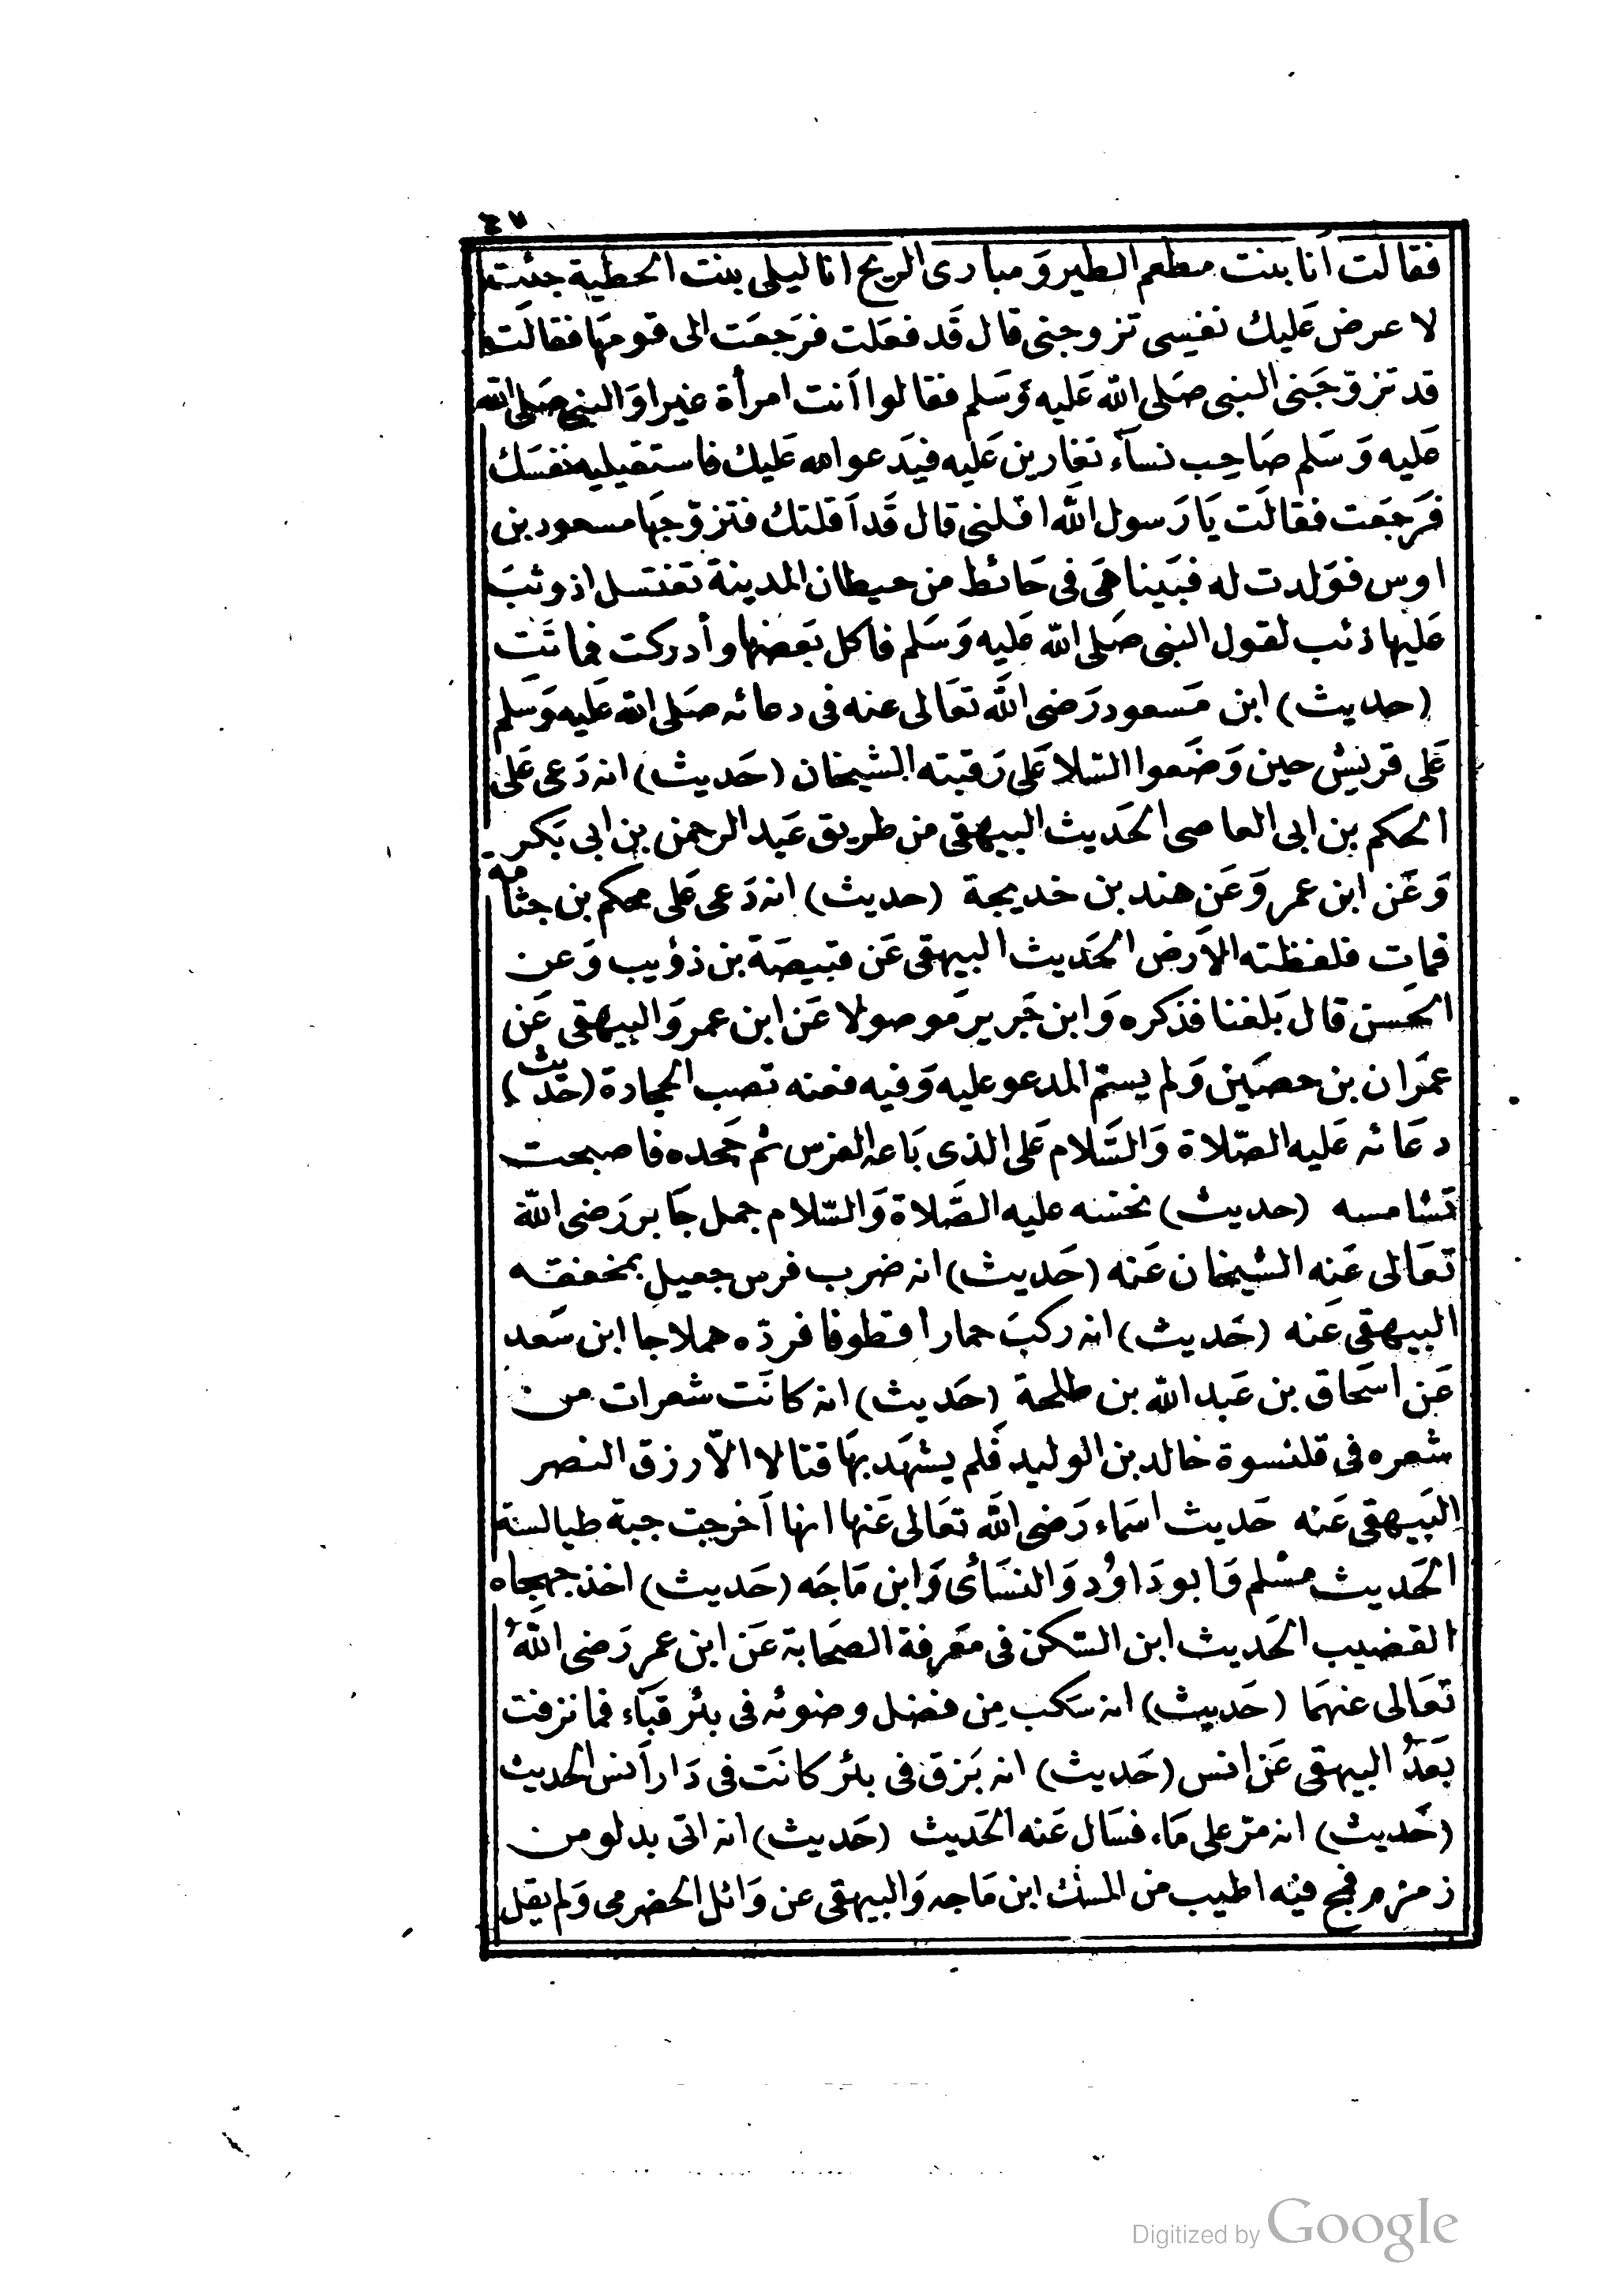 ٤٧
فقالت أنا بنت مطعم الطير وَمبارى الريح انا ليلى بنت الحطية جئت
لا عرض عَليك نفسى تزوجنى قال قَد فعَلت فرَجعَت الى قومهَا فقالَت
قد تزوّجَنى النبى صَلى الله عَليه وَسَلم فقالوا اَنت امرأة غيرا وَالنبى صَلى الله
عَليه وَسَلم صَاحِب نسآء تغارين عَليه فيَدعو الله عَليك فاستقيليه نفسَك
فَرَجَعَت فقالَت يَا رَسول الله اقلنى قال قَد اَقلتك فتزوّجَها مسعود بن
اوس فوَلدت له فبَينا هَى فى حَائط من حيطان المدينة تغتسل اذ وثبَ
عَليها ذئب لقول النبى صَلى الله عَليه وَسَلم فاكل بَعضها وأدركت فماتَت
(حديث) ابن مَسعود رَضى الله تعَالى عنه فى دعائه صَلى الله عَليه وَسَلم
عَلى قريش حين وَضَعوا السّلا عَلى رَقبته الشيخان (حَديث) انه دَعى عَلى
الحكم بن ابى العاصى الحَديث البيهقى من طريق عَبد الرحمن بن ابى بَكر
وَعَن ابن عمر وَعَن هند بن خديجة (حديث) انه دَعى عَلى محكم بن جثامة
فمات فلفظته الاَرض الحَديث البيهقى عَن قبيصَة بن ذؤيب وَعن
الحَسن قال بَلغنا فذكره وَابن جَرير مَوصولا عَن ابن عمر وَالبيهقى عَن
عمَران بن حصَين وَلم يسمّ المدعو عليه وَفيه فعنه تصب الحجادة (حَديث)
دعَائه عَليه الصّلاة وَالسَّلام عَلى الذى بَاعه الفرس ثم جَحده فاصبحت
تشامسه (حديث) نخسه عليه الصَّلاة وَالسّلام جمل جَابر رَضى الله
تعَالى عَنه الشيخان عَنه (حَديث) انه ضرب فرس جعيل بمخفقه
البيهقى عَنه (حَديث) انه ركبَ حمارا قطوفا فردّه هملاجا ابن سَعد
عَن اسَحاق بن عَبد الله بن طلحة (حَديث) انه كانَت شعرات من
شعره فى قلنسوة خالد بن الوليد فَلم يشهَد بهَا قتالا الاّ رزق النصر
البَيهقى عَنه حَديث اسمَاء رَضى الله تعَالى عَنها انها اَخرجت جبة طيالسة
الحَديث مسْلم وَابو دَاوُد وَالنسَائى وَابن مَاجَه (حَديث) اخذ جهجاه
القضيب الحَديث ابن السّكن فى مَعَرفة الصحَابة عَن ابن عمر رَضى الله
تعَالى عنهمَا (حَديث) انه سَكب مِن فضل وضوئه فى بئر قبَآء فما نزفت
بَعَدُ البيهقى عَن انس (حَديث) انه بَزق فى بئر كانَت فى دَار اَنس الحديث
(حَديث) انه مرّ على مَاء فسَال عَنه الحَديث (حَديث) انه اتى بدلو من
زمزم فمج فيْه اطيب من المسك ابن مَاجه وَالبيهقى عن وَائل الحضرمى وَلم يقل
Digitized by Google